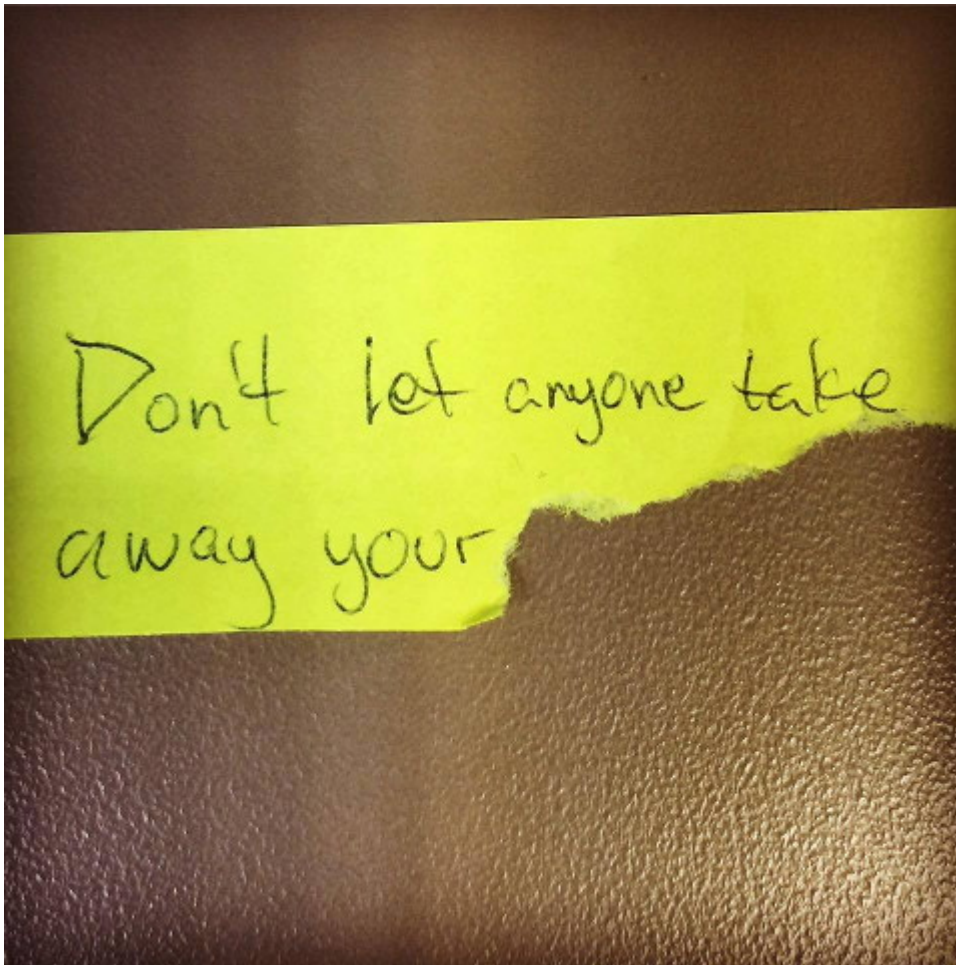 Don't let anyone take
away your